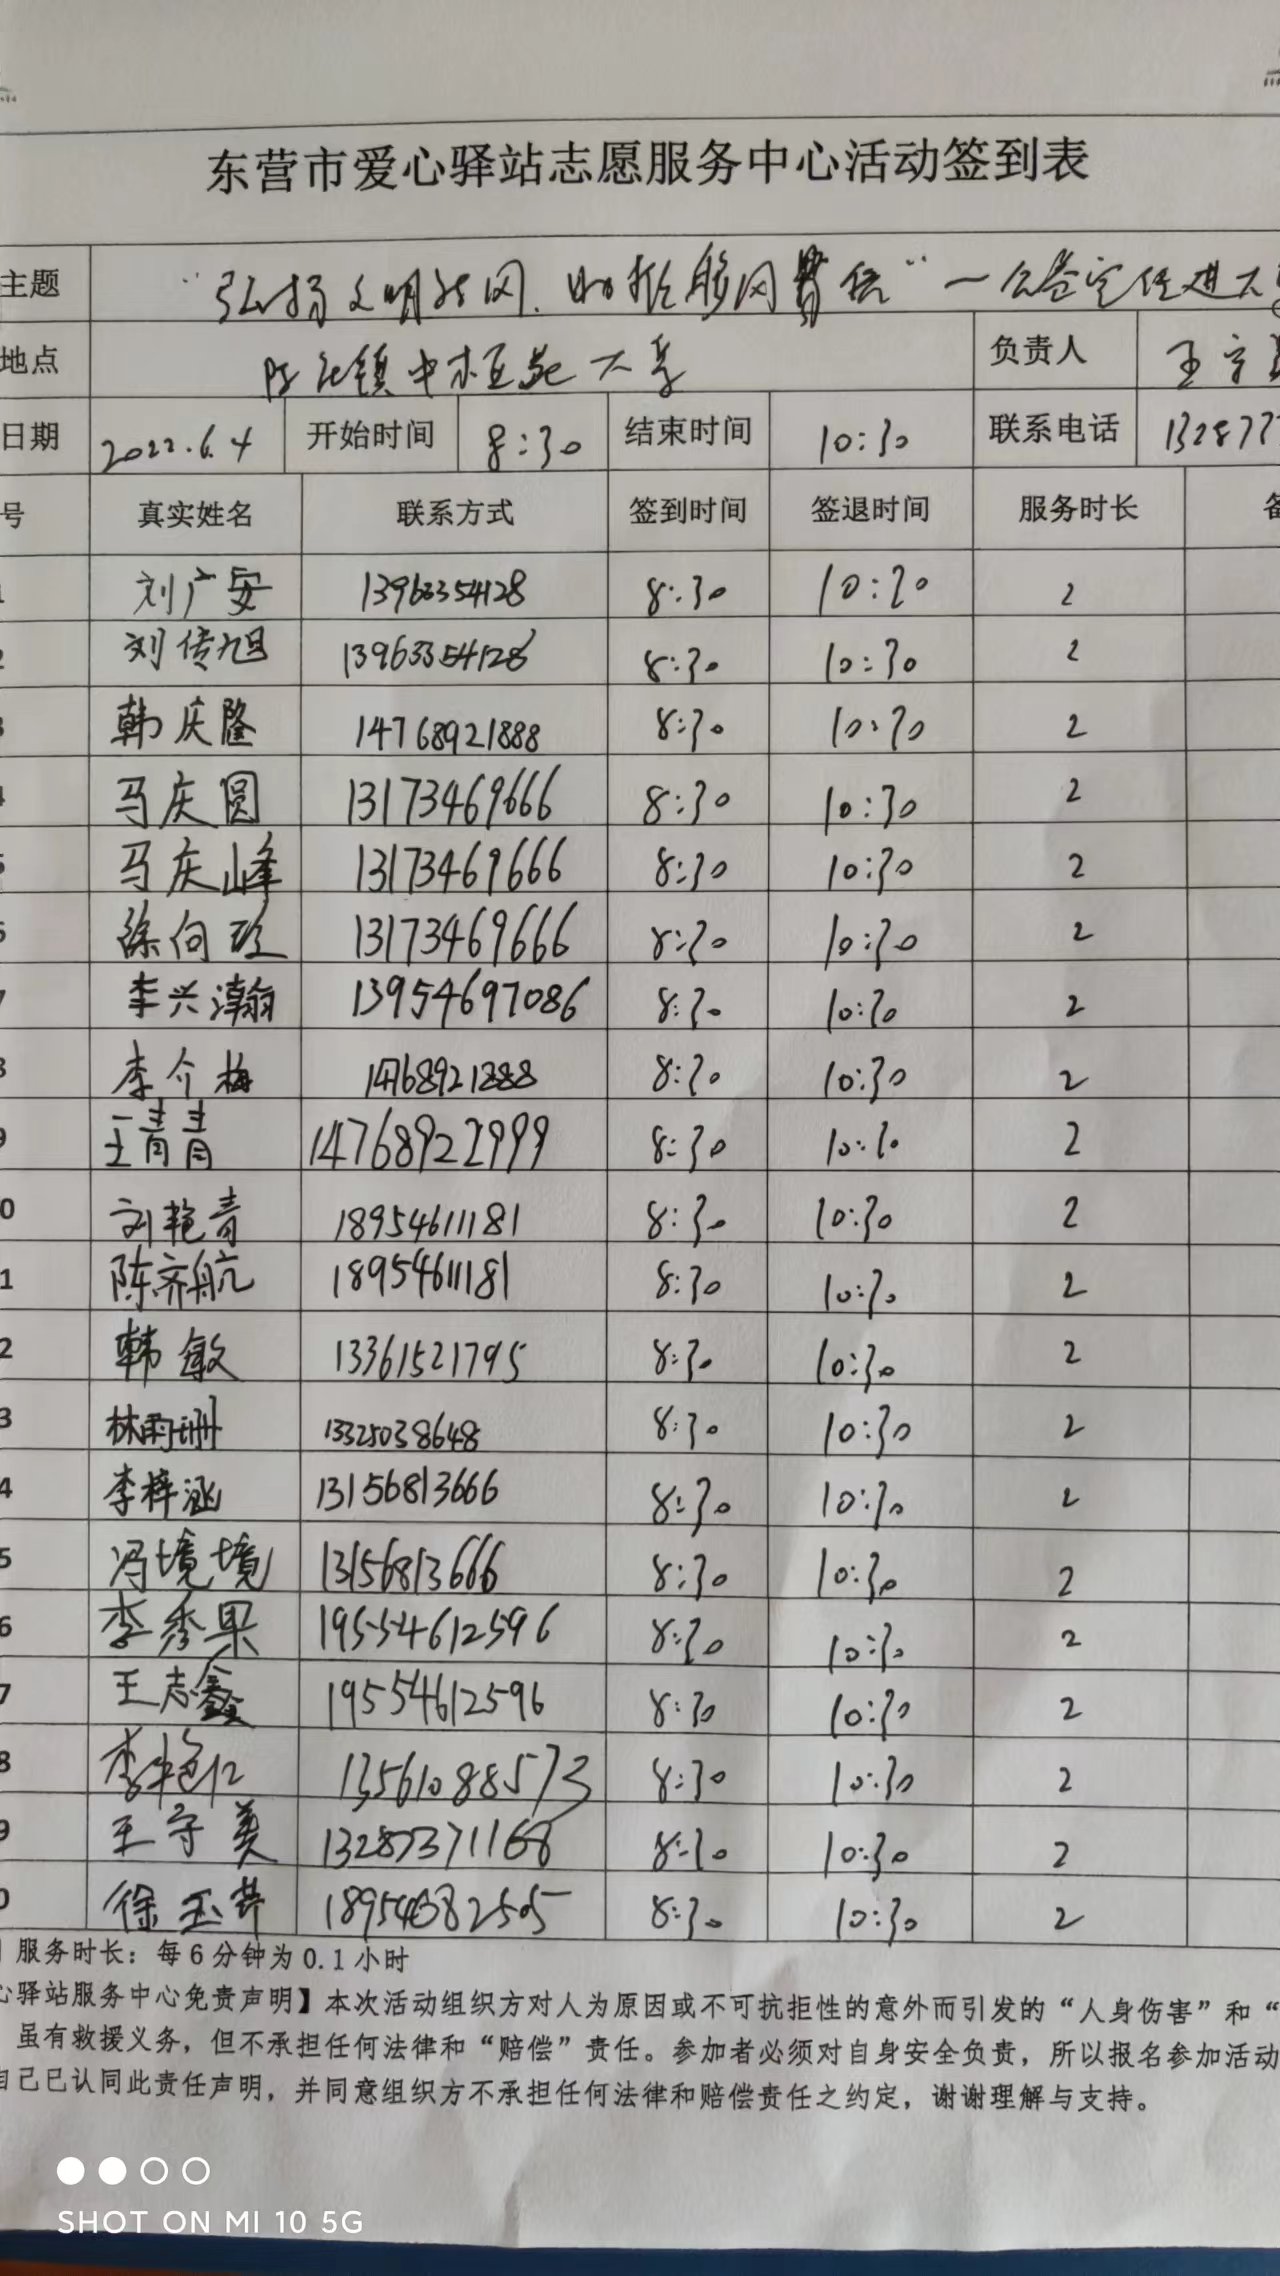 东营市爱心驿站志愿服务中心活动签到表
主题 "弘扬文明 进大
地点 镇中 大 负责人 王守
日期 2022.6.4 开始时间 8:30 结束时间 10:30 联系电话 132877
号 真实姓名 联系方式 签到时间 签退时间 服务时长
1 刘广安 13963354128 8:30 10:30 2
2 刘传旭 13963354128 8:30 10:30 2
3 韩庆隆 14768921888 8:30 10:30 2
4 马庆圆 13173469666 8:30 10:30 2
5 马庆峰 13173469666 8:30 10:30 2
6 徐向 13173469666 8:30 10:30 2
7 李兴瀚 13954697086 8:30 10:30 2
8 李介梅 14768921888 8:30 10:30 2
9 王青青 14768922999 8:30 10:30 2
0 刘艳青 18954611181 8:30 10:30 2
1 陈齐航 18954611181 8:30 10:30 2
2 韩敏 13361521795 8:30 10:30 2
3 林雨珊 13325038648 8:30 10:30 2
4 李梓涵 13156813666 8:30 10:30 2
5 冯境境 13156813666 8:30 10:30 2
6 李秀果 19554612596 8:30 10:30 2
7 王志鑫 19554612596 8:30 10:30 2
8 李艳仁 13561088573 8:30 10:30 2
9 王守美 13287371168 8:30 10:30 2
0 徐玉芹 8:30 10:30 2
服务时长：每6分钟为0.1小时
心驿站服务中心免责声明】本次活动组织方对人为原因或不可抗拒性的意外而引发的“人身伤害”和“
虽有救援义务，但不承担任何法律和“赔偿”责任。参加者必须对自身安全负责，所以报名参加活动
自己已认同此责任声明，并同意组织方不承担任何法律和赔偿责任之约定，谢谢理解与支持。
SHOT ON MI 10 5G